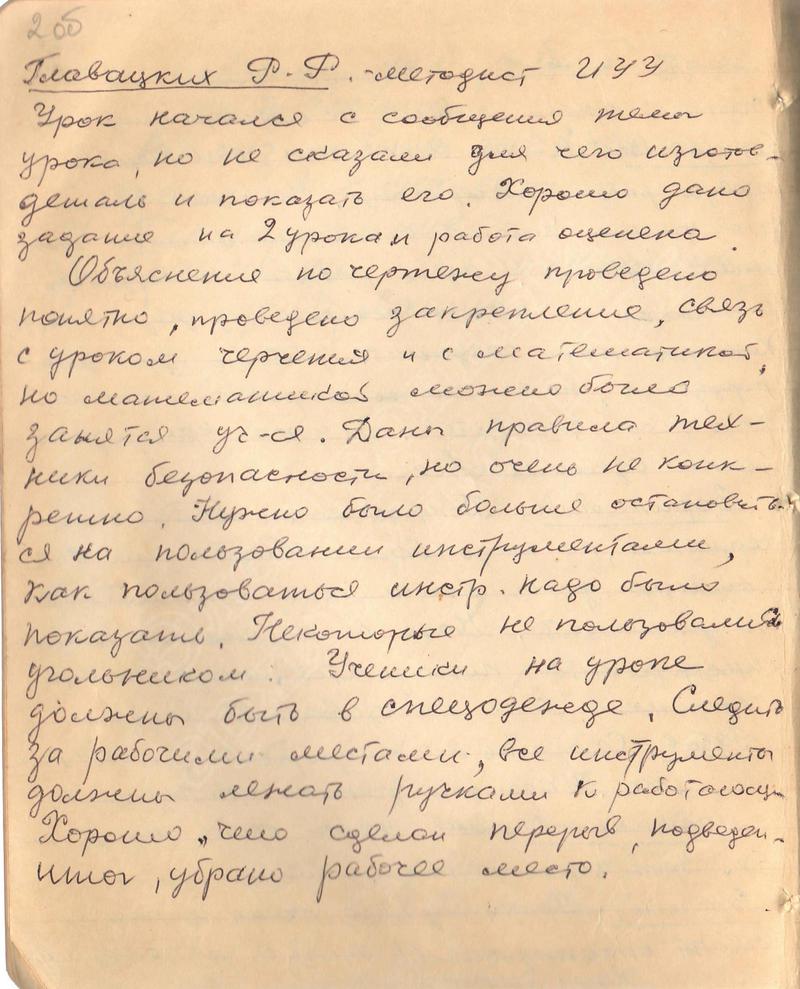 2об
Главацких Р. Р. - методист ИУУ
Урок начался с сообщения темы
урока, но не сказали для чего изготов-
деталь и показать его. Хорошо дано
задание на 2 урока и работа оценена.
Объяснение по чертежу проведено
понятно, проведено закрепление, связь
с уроком черчения и с математикой,
но математикой можно было
занятся уч-ся. Даны правила тех-
ники безопасности, но очень не конк-
ретно. Нужно было больше остановить-
ся на пользовании инструментами,
как пользоваться инстр. надо было
показать. Некоторые не пользовались
угольником. Ученики на уроке
должны быть в спецодежде. Следить
за рабочими местами, все инструменты
должны лежать ручками к работающ
Хорошо, что сделан перерыв, подведен-
итог, убрано рабочее место.